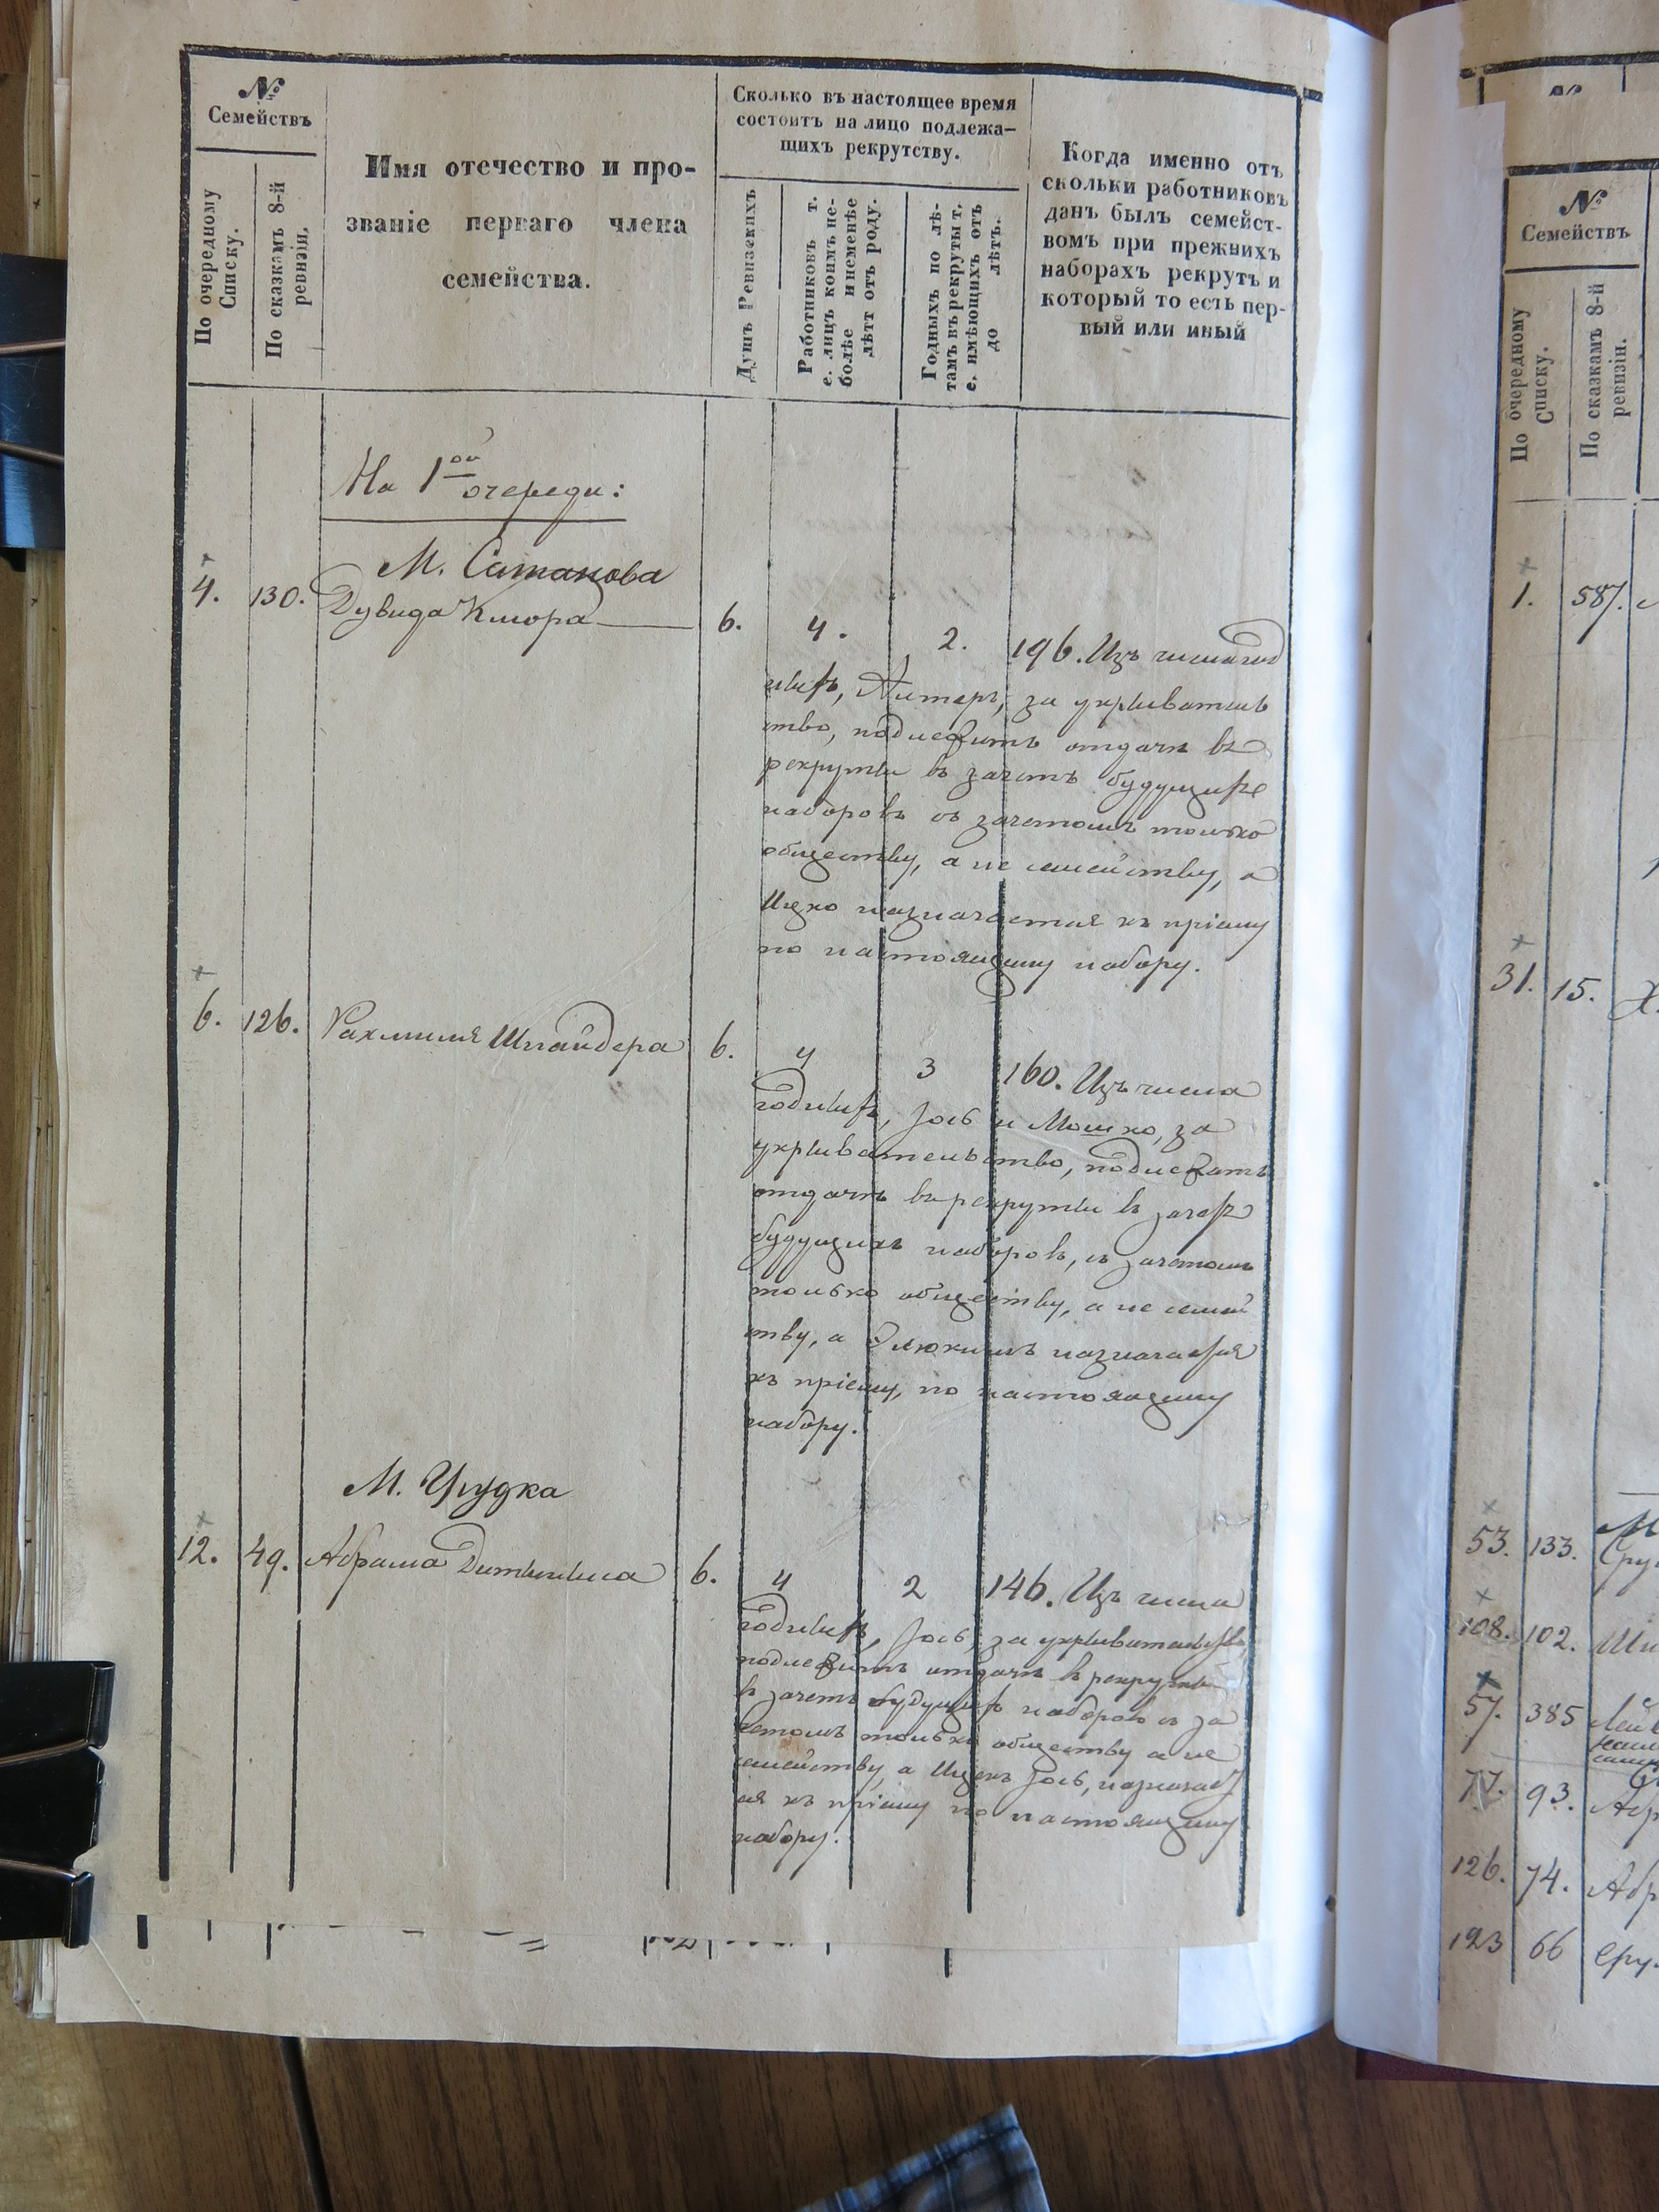 №
Семействъ
По очередному
Списку.
По сказкамъ 8-й
ревизіи.
Имя отечество и про-
званіе перваго члена
семейства.
Сколько въ настоящее время
состоитъ на лицо подлежа-
щихъ рекрутству.
Душъ Ревизскихъ
Работниковъ т.
е. лицъ коимъ не-
болѣе и неменѣе
лѣтт отъ роду.
Годныхъ по лѣ-
тамъ въ рекруты т.
е. имѣющихъ отъ
до лѣтъ.
Когда именно отъ
скольки работниковъ
данъ былъ семейст-
вомъ при прежнихъ
наборахъ рекрутъ и
который то есть пер-
вый или иный
На 1ой очереди:
М. Сатанова
4. 130. Дувида Клюра 6. 4. 2. 196. Изъ числа год
ныхъ, Алтеръ, за укрывательс
тво, подлежитъ отдачѣ въ
рекруты въ зачетъ будущихъ
наборовъ съ зачетомъ только
обществу, а не семейству, а
Ицко назначается къ пріему
по настоящему набору.
6. 126. Рахмиля Шнайдера 6. 4 3 160. Изъ числа
годныхъ, Іось и Мошко, за
укрывательство, подлежатъ
отдачѣ въ рекруты въ зачетъ
будущихъ наборовъ, съ зачетомъ
только обществу, а не семей
ству, а Элюкимъ назначается
къ пріему, по настоящему
набору.
М. Грудка
12. 49. Абрама 6. 4 2 146. Изъ числа
годныхъ, Іось, за укрывательство
подлежитъ отдачѣ въ рекруты
въ зачетъ будущихъ наборовъ съ за
четомъ только обществу а не
семейству, а Ицекъ Іось, назначает
ся къ пріему по настоящему
набору.
№
Семействъ
По очередному
Списку.
По сказкамъ 8-й
ревизіи.
1. 587.
31. 15. Х.
53. 133.
108. 102.
57. 385
77. 93.
126. 74.
123 66